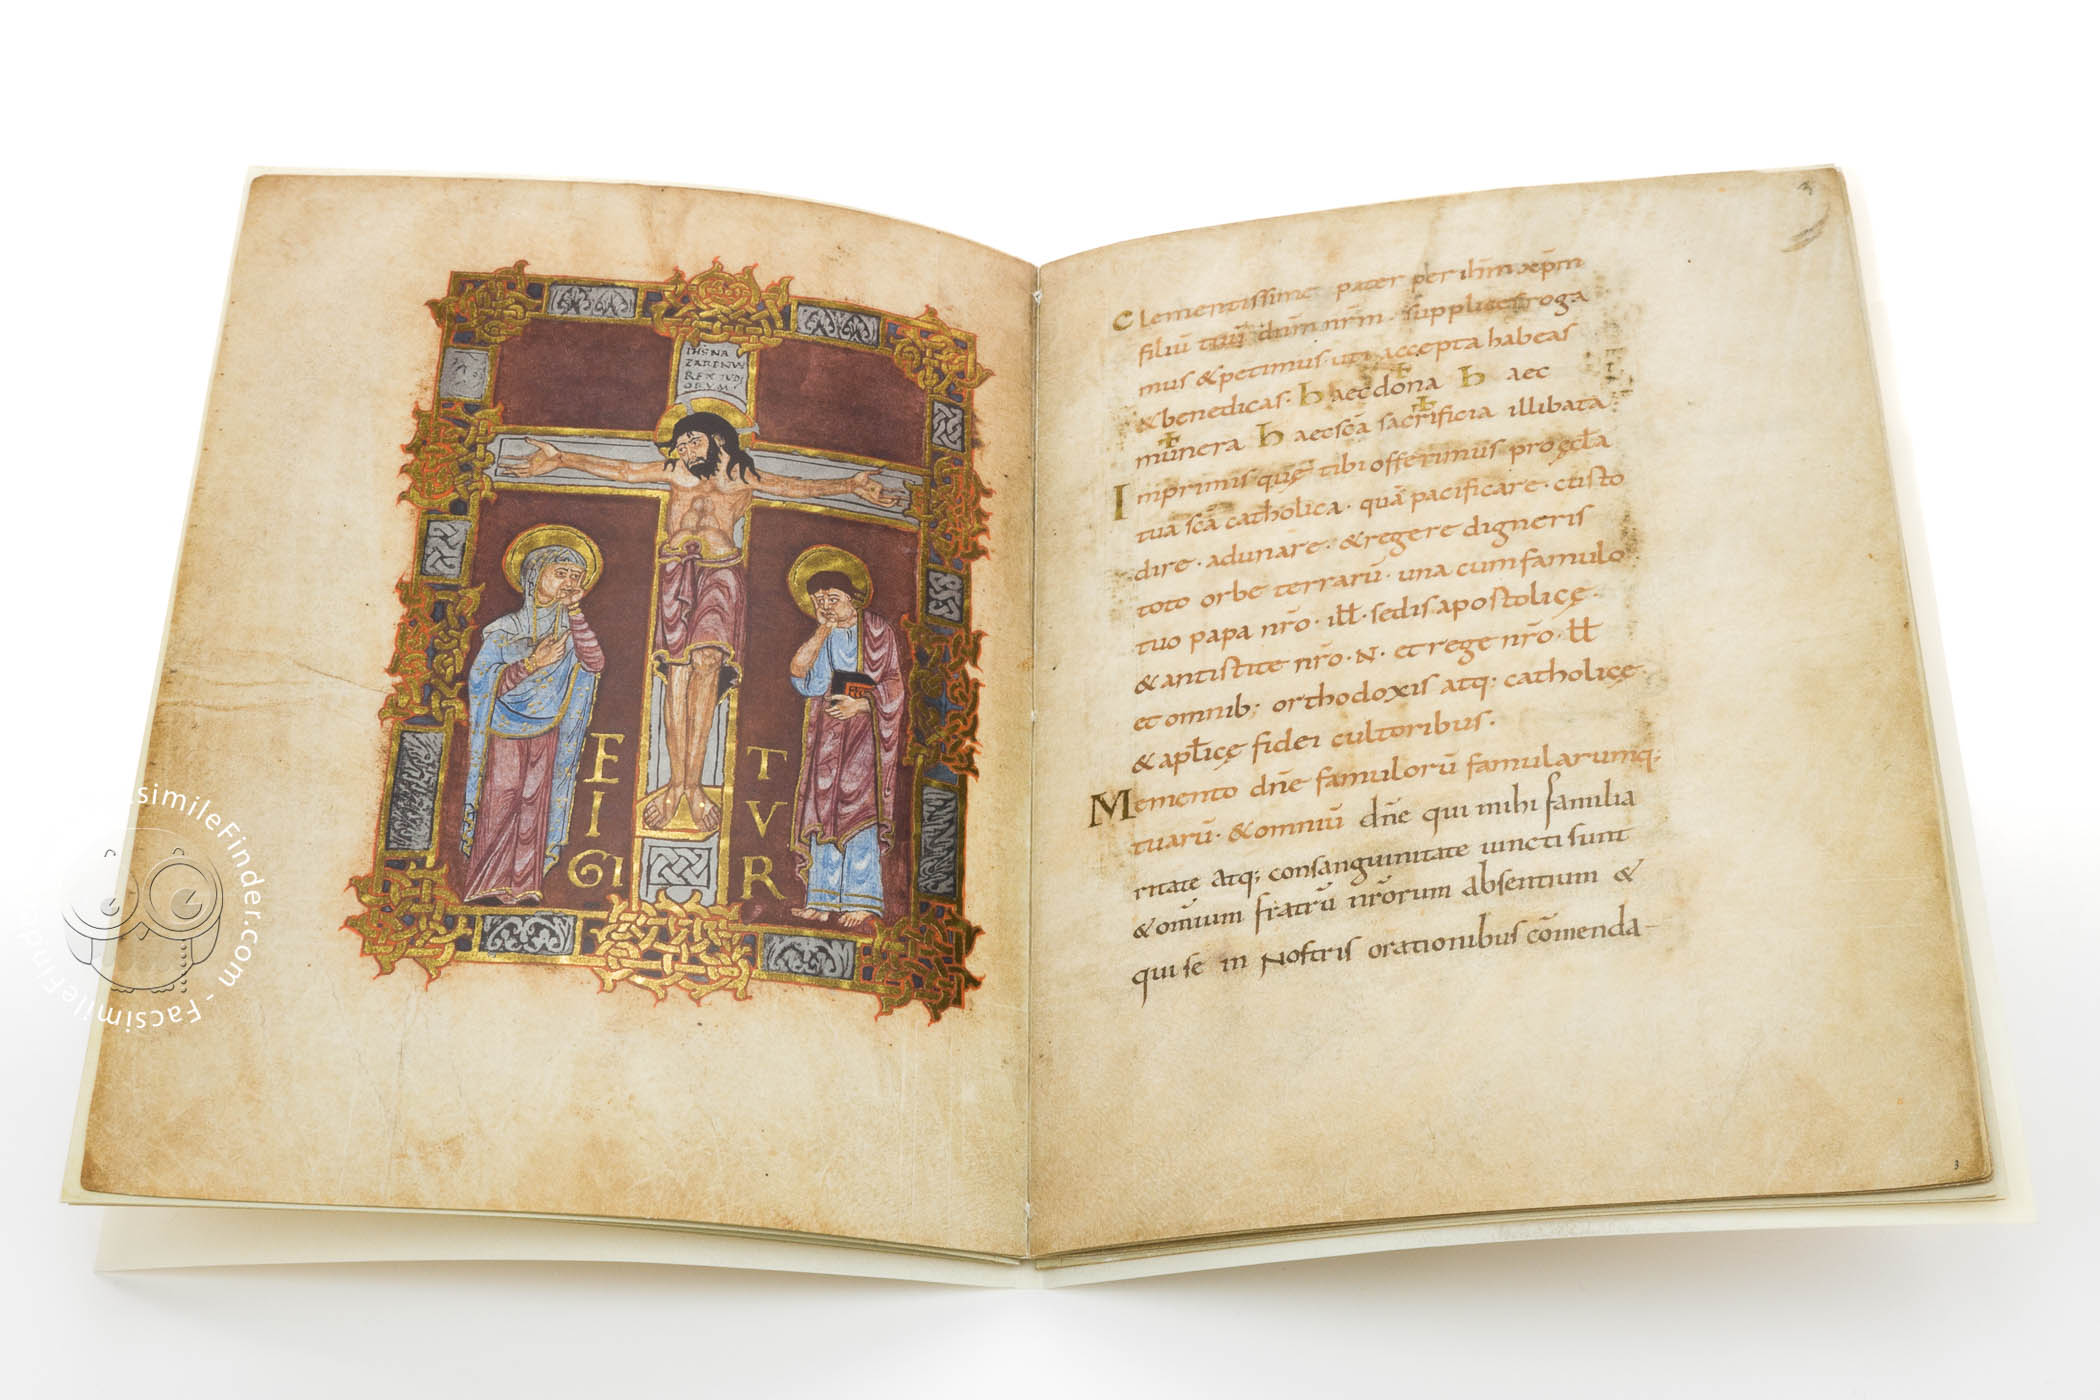 IHS NA
ZARENVS
REX IUDE
ORVM
E T
I V
GI R
3
Clementissime pater per ihm xpm
filiū tuū dnm nrm · supplices roga
mus & petimus · uti accepta habeas
& benedicas · haec dona haec
munera haec scā sacrificia illibata ·
Inprimis quę tibi offerimus pro ęcła
tua scā catholica · quā pacificare · custo
dire · adunare · & regere digneris
toto orbe terrarū · una cum famulo
tuo papa nr̄o · ill̄ · sedis apostolicę ·
& antistite nr̄o · N · et rege nr̄o · ill̄
et omnib; orthodoxis atq · catholicę ·
& apl̄icę fidei cultoribus ·
Memento dn̄e famulorū famularumq;
tuarū · & omniū dn̄e qui mihi familia
ritate atq; consanguinitate iuncti sunt
& om̄ium fratrū nr̄orum absentium &
qui se in nostris orationibus cōmenda-
3
FacsimileFinder.com - FacsimileFinde